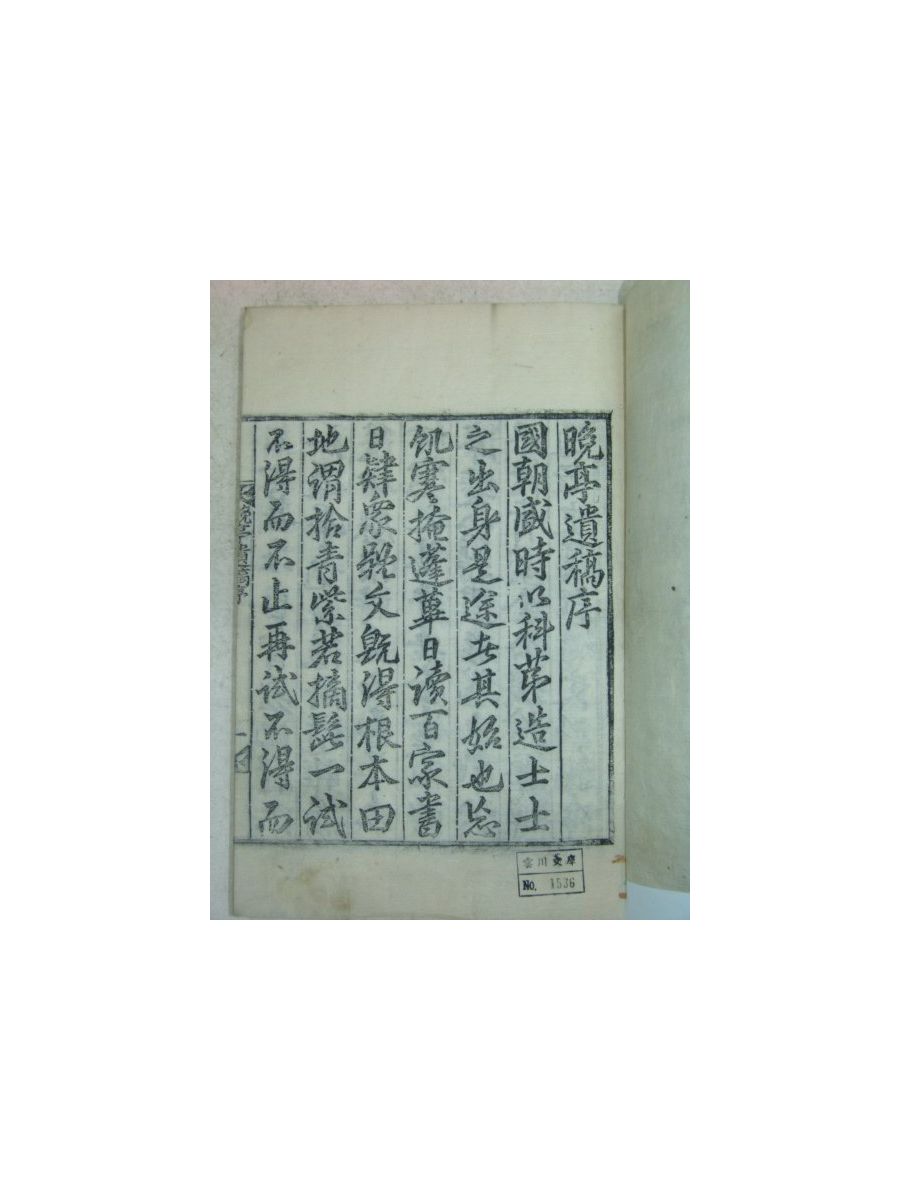 晩亭遺稿序
國朝盛時以科第造士士
之出身是途者其始也忘
飢寒掩蓬蓽日讀百家書
日肄衆軆文旣得根本田
地謂拾靑紫若摘髭一試
不得而不止再試不得而
晩亭遺稿序
一
雲川文庫
No. 1536